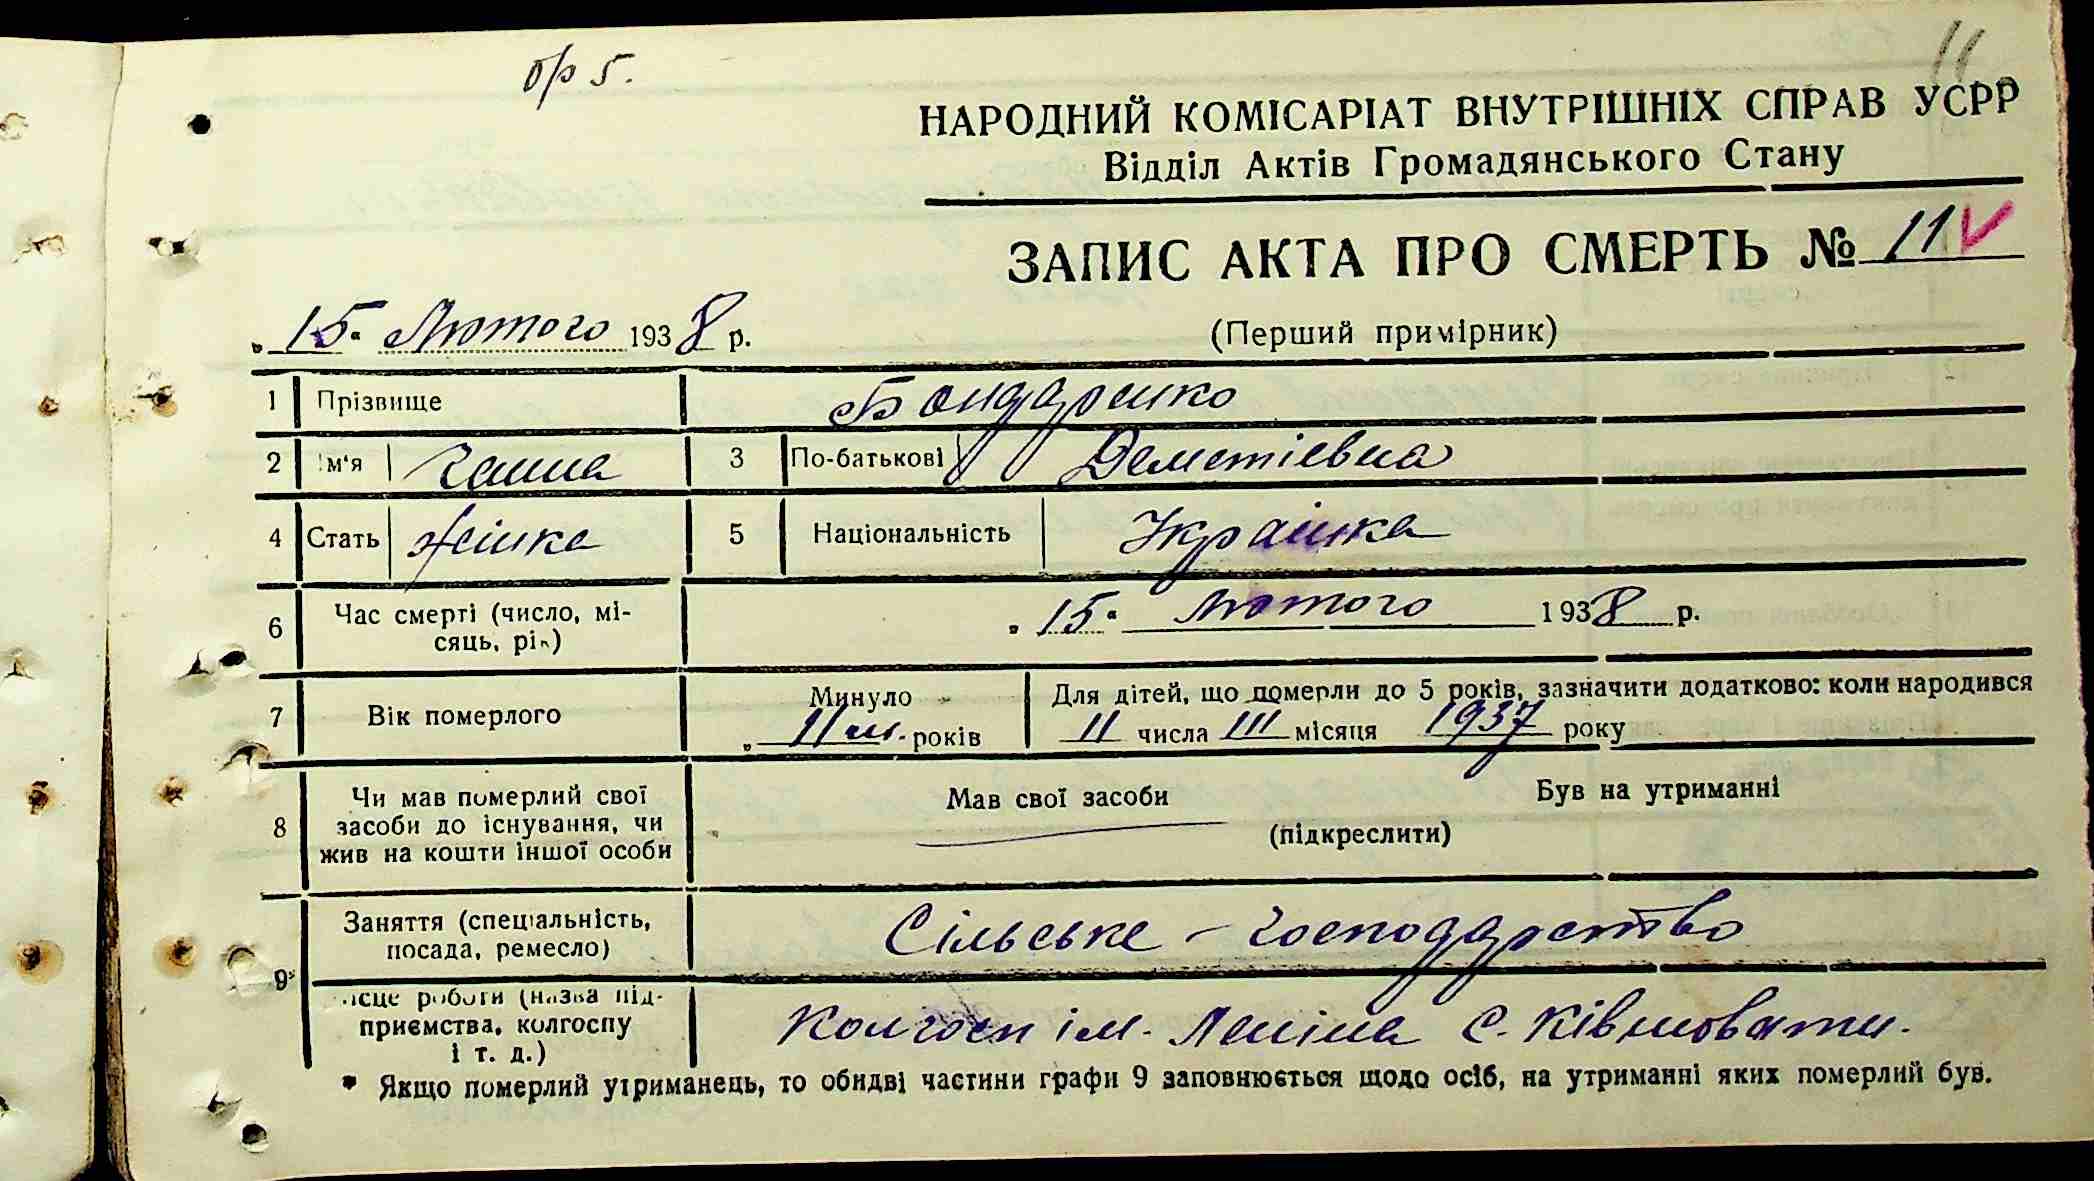 бр 5.
11
НАРОДНИЙ КОМІСАРІАТ ВНУТРІШНІХ СПРАВ УСРР
Відділ Актів Громадянського Стану
ЗАПИС АКТА ПРО СМЕРТЬ № 11
„15“ Лютого 1938 р.
(Перший примірник)
1 Прізвище Бондаренко
2 Ім'я Ганна 3 По-батькові Деметіевна
4 Стать жінка 5 Національність Українка
6 Час смерті (число, мі-
сяць, рік)
„15“ Лютого 1938 р.
7 Вік померлого
Минуло
„11 м. років
Для дітей, що померли до 5 років, зазначити додатково: коли народився
11 числа III місяця 1937 року
8 Чи мав померлий свої
засоби до існування, чи
жив на кошти іншої особи
Мав свої засоби Був на утриманні
(підкреслити)
9* Заняття (спеціальність,
посада, ремесло)
Сільське - господарство
місце роботи (назва під-
приємства, колгоспу
і т. д.)
Колгосп ім. Леніна С. Ківшовати.
* Якщо померлий утриманець, то обидві частини графи 9 заповнюється щодо осіб, на утриманні яких померлий був.